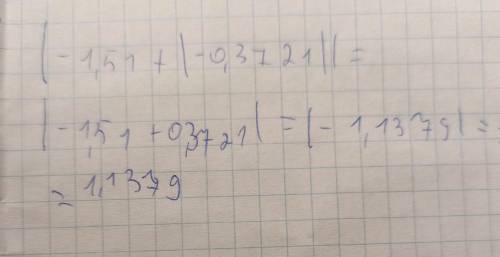 |-1,51+|-0,3721||=
|-1,51+0,3721|=|-1,1379|=
=1,1379